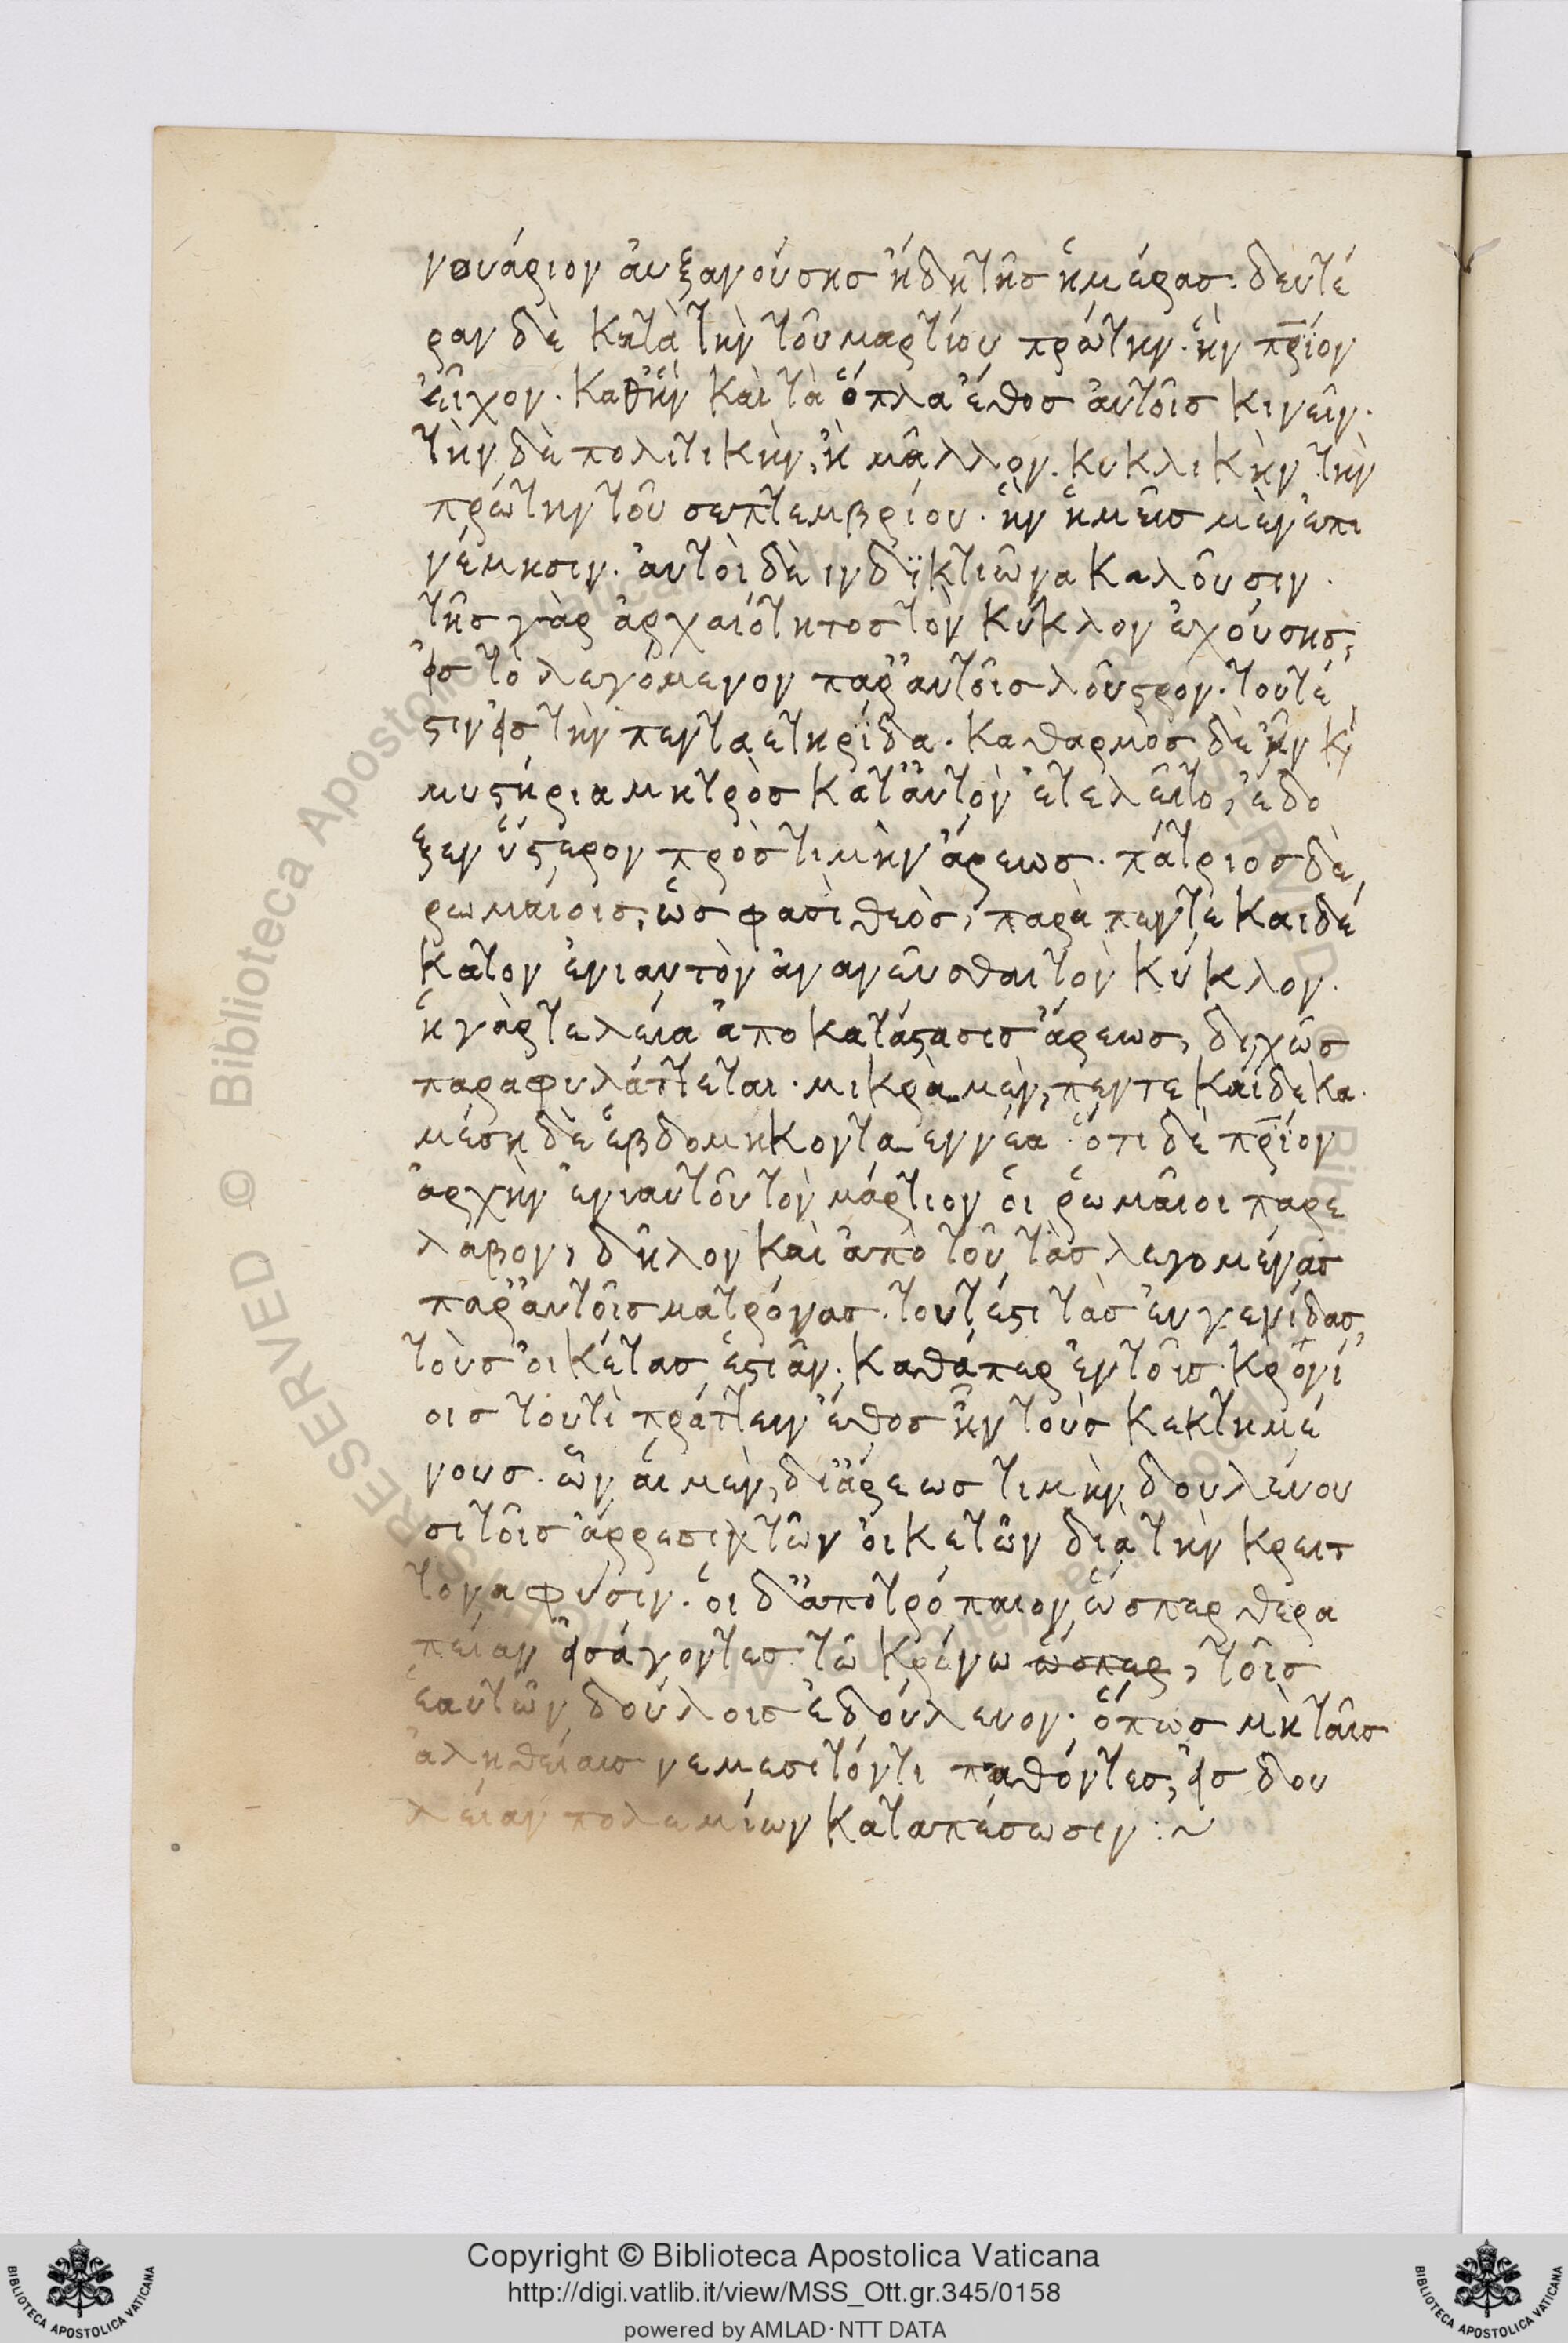 νουάριον ἀυξανούσης ἤδη τῆς ἡμέρας. δευτέ
ραν δὲ κατὰ τὴν τοῦ μαρτίου πρώτην. ἣν πρίον
εἶχον. καθ' ἣν καὶ τὰ ὅπλα ἔθος ἀυτοῖς κινεῖν.
τὴν δὲ πολιτικὴν, ἢ μᾶλλον κυκλικὴν τὴν
πρώτην τοῦ σεπτεμβρίου. ἣν ἡμεῖς μὲν ἐπι
νέμησιν. ἀυτοὶ δὲ ινδϊκτιῶνα καλοῦσιν.
τῆς γὰρ ἀρχαιότητος τὸν κύκλον ἐχούσης,
εἰς τὸ λεγόμενον παρ' ἀυτοῖς λοῦστρον. τουτέ
στιν εἰς τὴν πενταετηρΐδα. καθαρμὸς δὲ ἦν κὶ
μυστήρια μητρὸς κατ' ἀυτὸν ἐτελεῖτο, ἔδο
ξεν ὕστερον πρὸς τιμὴν ἄρεως. πάτριος δὲ
ρωμαίοις, ὥς φασὶ θεὸς, παρὰ πεντε και δέ
κατον ἐνιαυτὸν ἀνανεῦσθαι τὸν κύκλον.
ἡ γὰρ τελεία ἀποκατάστασις ἄρεως, διχῶς
παραφυλάττεται. μικρὰ μὲν, πεντε καίδεκα.
μέση δὲ ἑβδομηκοντα εννέα. ὅτι δὲ πρίον
ἀρχὴν ἐνιαυτοῦ τὸν μάρτιον ὁι ῥωμαῖοι παρε
λαβον, δῆλον καὶ ἀπὸ τοῦ τὰς λεγομένας
παρ' ἀυτοῖς ματρόνας. τουτέστι τὰς ἐυγενίδας,
τοὺς ὀικέτας ἑστιᾶν. καθάπερ ἐν τοῖς κρονί
οις τουτὶ πράττειν ἔθος ἦν τοὺς κεκτημέ
νους. ὧν ἁι μὲν, δι' ἄρεως τιμὴν δουλεύου
σι τοῖς ἄρρεσι τῶν ὀικετῶν διὰ τὴν κρειτ
τονα φύσιν. ὁι δ' ἀποτρόπαιον ὥσπερ θερα
πείαν εἰσάγοντες τῶ κρόνω ὥσπερ, τοῖς
ἑαυτῶν δούλοις ἐδούλευον. ὅπως μὴ ταῖς
ἀληθείαις νεμεσι τόντι παθόντες, εἰς δου
λείαν πολεμίων καταπέσωσιν :~
Copyright © Biblioteca Apostolica Vaticana
http://digi.vatlib.it/view/MSS_Ott.gr.345/0158
powered by AMLAD·NTT DATA